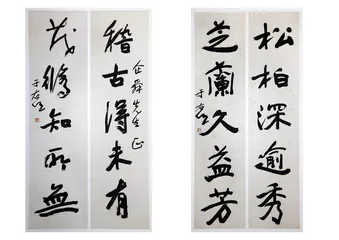 稽古得未有
企舜先生正
茂知所無
于右任
松柏深逾秀
芝蘭久益芳
于右任